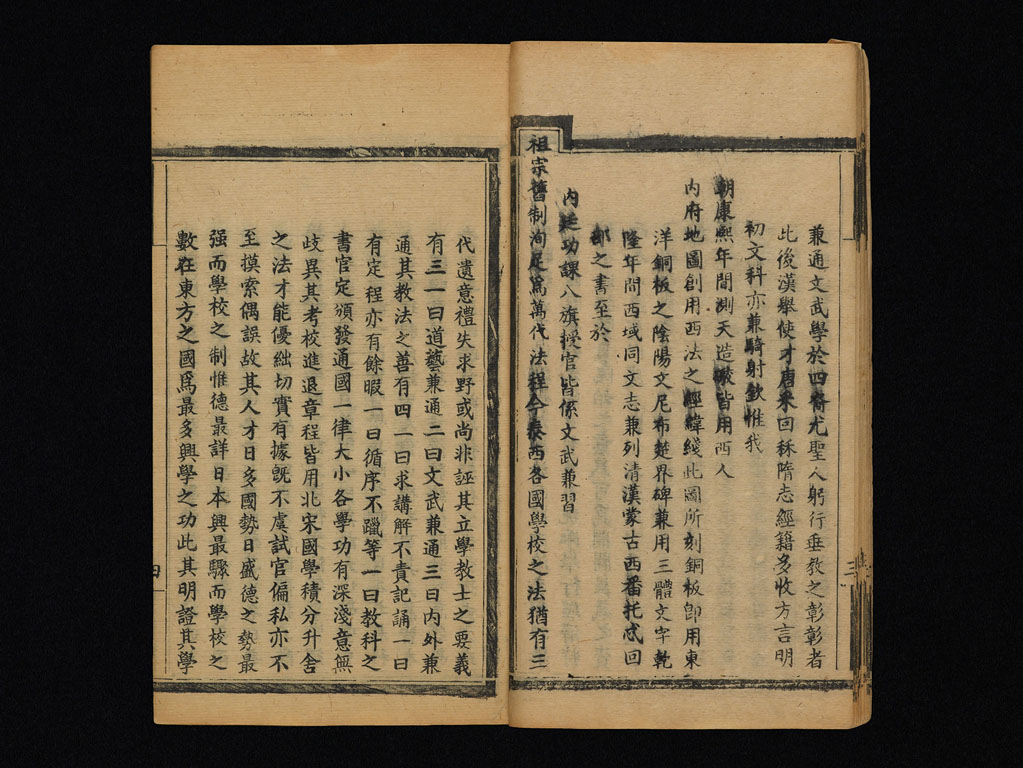 兼通文武學於四裔尤聖人躬行垂教之彰彰者
此後漢舉使才唐求回秝隋志經籍多收方言明
初文科亦兼騎射欽惟我
朝康熙年間測天造礮皆用西人
內府地圖創用西法之經緯綫此圖所刻銅板卽用東
洋銅板之陰陽文尼布楚界碑兼用三體文字乾
隆年間西域同文志兼列清漢蒙古西番托忒回
部之書至於
內廷功課八旗授官皆係文武兼習
祖宗舊制洵足爲萬代法程今泰西各國學校之法猶有三
代遺意禮失求野或尚非誣其立學教士之要義
有三一曰道藝兼通二曰文武兼通三曰內外兼
通其教法之善有四一曰求講解不責記誦一曰
有定程亦有餘暇一曰循序不躐等一曰教科之
書官定頒發通國一律大小各學功有深淺意無
歧異其考校進退章程皆用北宋國學積分升舍
之法才能優絀切實有據旣不虞試官偏私亦不
至摸索偶誤故其人才日多國勢日盛德之勢最
强而學校之制惟德最詳日本興最驟而學校之
數在東方之國爲最多興學之功此其明證其學
三
四